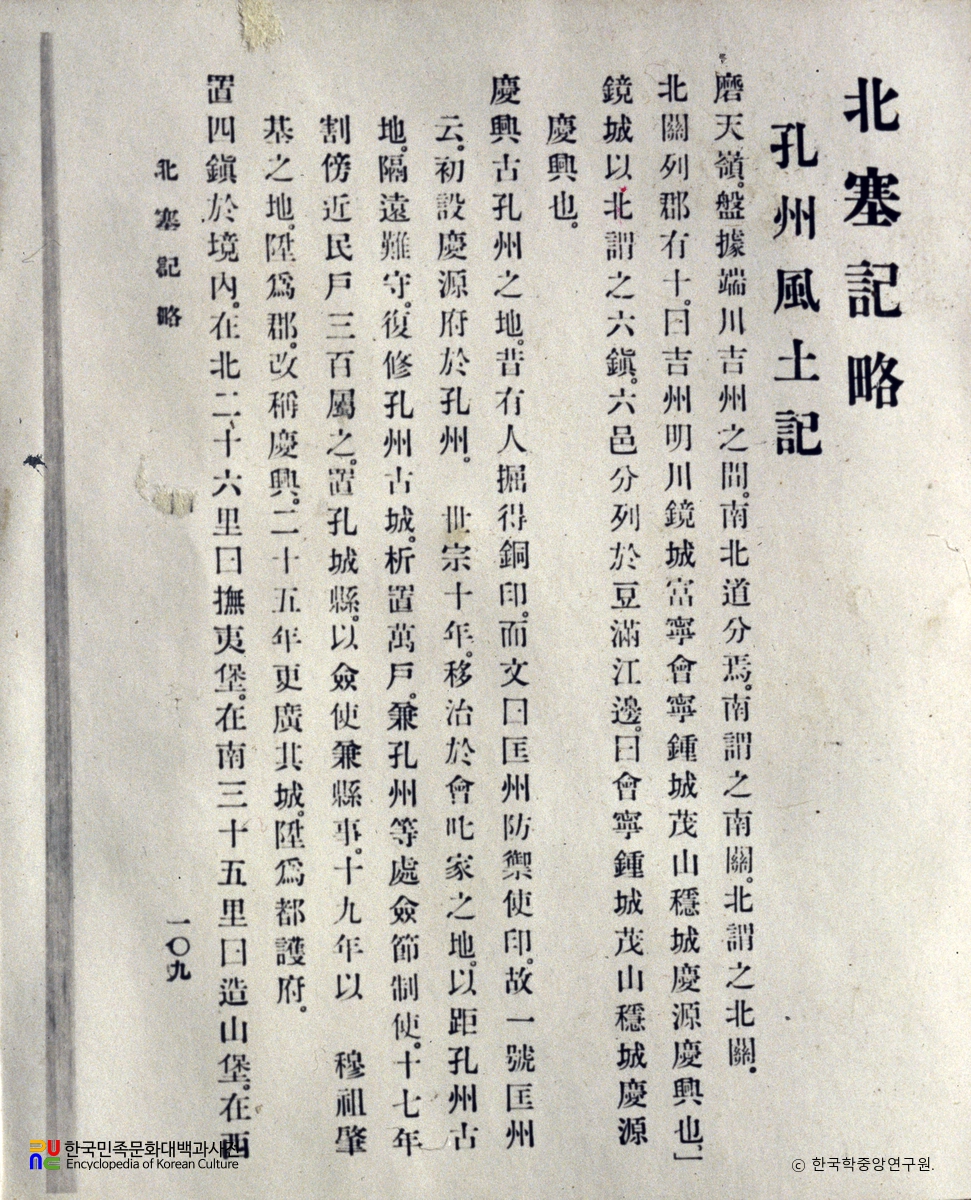 北塞記略
孔州風土記
磨天嶺。盤據端川吉州之間。南北道分焉。南謂之南關。北謂之北關。
北關列郡有十。曰吉州明川鏡城富寧會寧鍾城茂山穩城慶源慶興也、
鏡城以北謂之六鎭。六邑分列於豆滿江邊。曰會寧鍾城茂山穩城慶源
慶興也。
慶興古孔州之地。昔有人掘得銅印。而文曰匡州防禦使印。故一號匡州
云。初設慶源府於孔州。 世宗十年。移治於會叱家之地。以距孔州古
地。隔遠難守。復修孔州古城。析置萬戶。兼孔州等處僉節制使。十七年
割傍近民戶三百屬之。置孔城縣。以僉使兼縣事。十九年以 穆祖肇
基之地。陞爲郡。改稱慶興。二十五年更廣其城。陞爲都護府。
置四鎭於境內。在北二十六里曰撫夷堡。在南三十五里曰造山堡。在西
北塞記略
一〇九
한국민족문화대백과사전
Encyclopedia of Korean Culture
© 한국학중앙연구원.